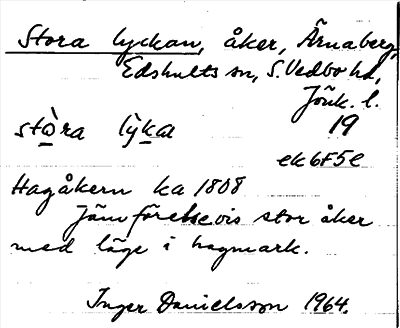 Stora lyckan, åker, Ärnaberg,
Edshults sn, S. Vedbo hd,
Jönk. l.
stò̱ra lỳḵa 19
ek6F5e
Hagåkern ka 1808
Jämförelsevis stor åker
med läge i hagmark.
Inger Danielsson 1964.